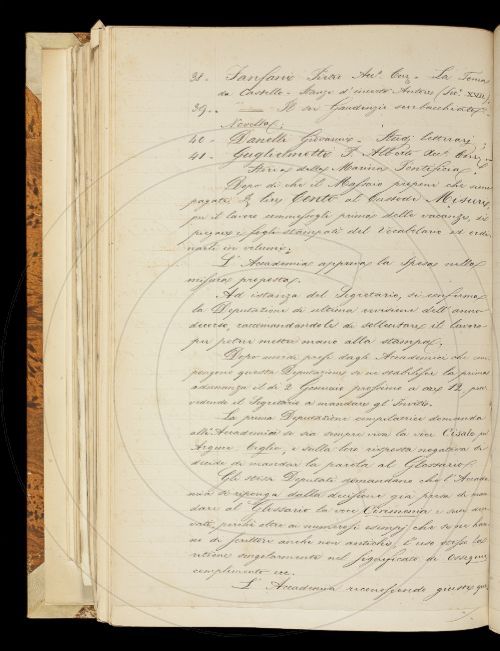 38. Fanfani Pietro Acc. Corr. La Toma
da Castello - Stanze d'incerto Autore (Sec. XVII);
39. — Il ser Gaudenzio
Novella;
40. Danelli Giovanni - Studj letterarj;
41. Guglielmotti P. Alberto Acc. Corr.
Storia della Marina Pontificia.
Dopo di che il Massaio propone che sieno
pagate Lire Cento al Custode
per il lavoro fatto prima delle vacanze, di
piegare i fogli stampati del Vocabolario ed ordi-
narli in volumi;
L'Accademia approva la spesa nella
misura proposta.
Ad istanza del Segretario, si conferma
la Deputazione di ultima revisione dell'anno
decorso, raccomandandole di sollecitare il lavoro
per poter metter mano alla stampa.
Dopo accordi presi dagli Accademici che com-
pongono questa Deputazione se ne stabilisce la prima
adunanza il dì 2 Gennaio prossimo a ore 12, prov-
vedendo il Segretario a mandare gl'Inviti.
La prima Deputazione compilatrice domanda
all'Accademia se sia sempre viva la voce Cisale per
Argine, Ciglio, e sulla loro risposta negativa si
decide di mandar la parola al Glossario.
Gli stessi Deputati domandano che l'Accade-
mia si riponga dalla decisione già presa di man-
dare al Glossario la voce Cerimonia e suoi deri-
vati, perchè oltre a numerosi esempj che se ne han-
no di scrittori anche non antichi, l'uso stesso la
ritiene singolarmente nel significato di ossequio,
complimento ec.
L'Accademia riconoscendo giuste